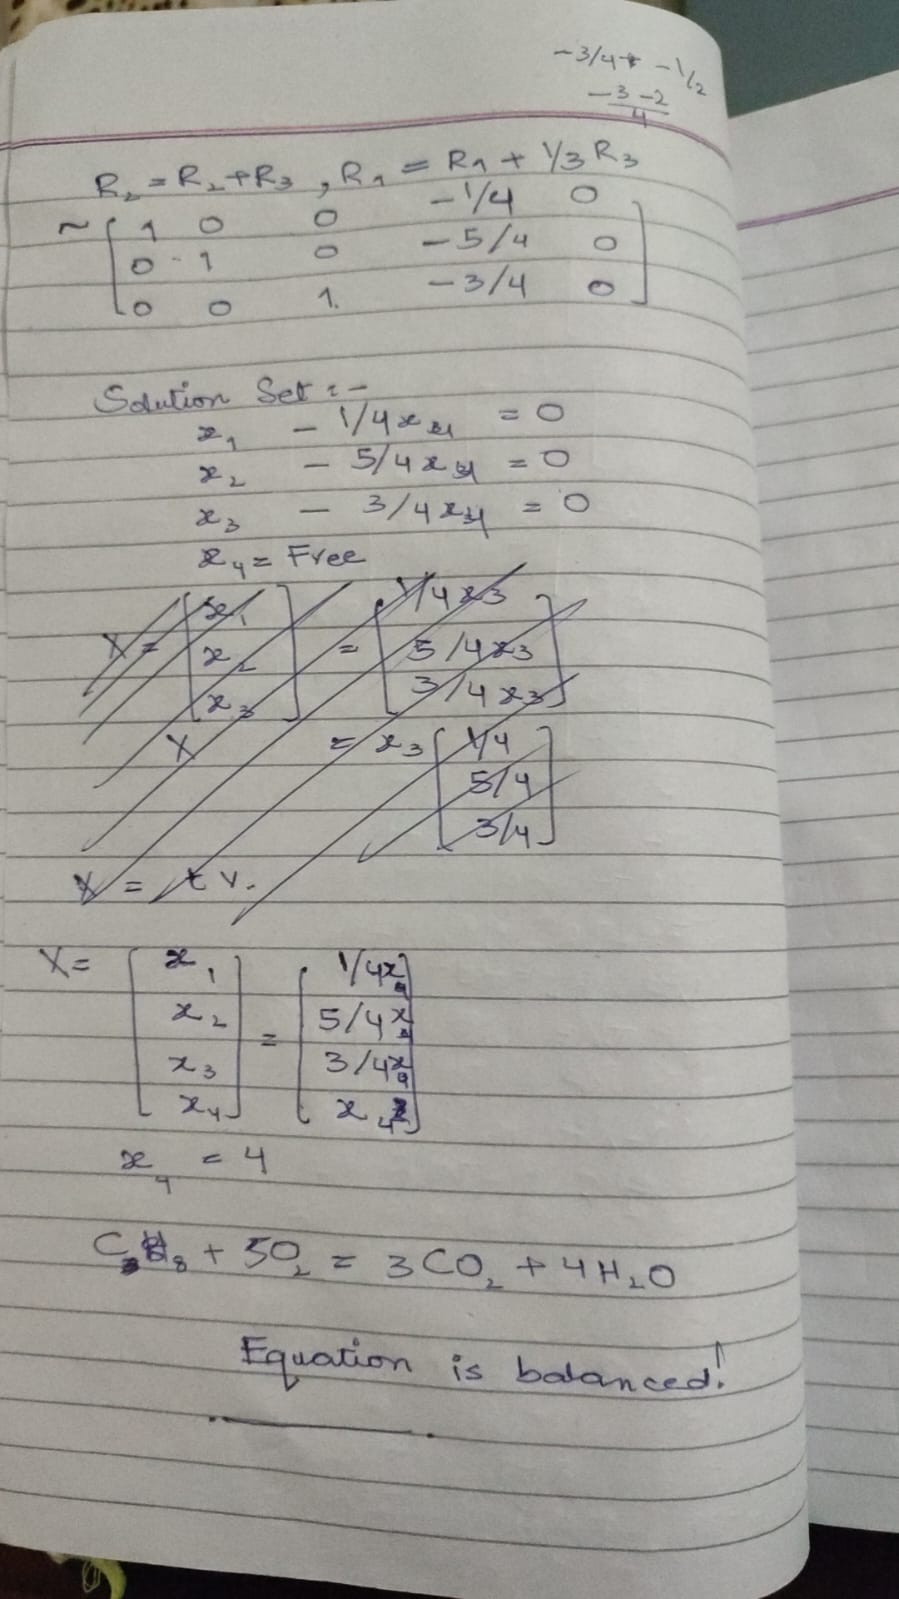 -3/4 + -1/2
-3-2
4
R₂ = R₂+R₃ , R₁ = R₁ + 1/3 R₃
~ [ 1 0 0 -1/4 0
0 1 0 -5/4 0
0 0 1. -3/4 0 ]
Solution Set :-
x₁ - 1/4x₄ = 0
x₂ - 5/4x₄ = 0
x₃ - 3/4x₄ = 0
x₄ = Free
X = [ x₁ = [ 1/4x3
x₂ 5/4x3
x₃ ] 3/4x3 ]
X = x₃ [ 1/4
5/4
3/4 ]
X = t v.
X = [ x₁ = [ 1/4x₄
x₂ 5/4x₄
x₃ 3/4x₄
x₄ ] x₄ ]
x₄ = 4
C₃H₈ + 5O₂ = 3CO₂ + 4H₂O
Equation is balanced!